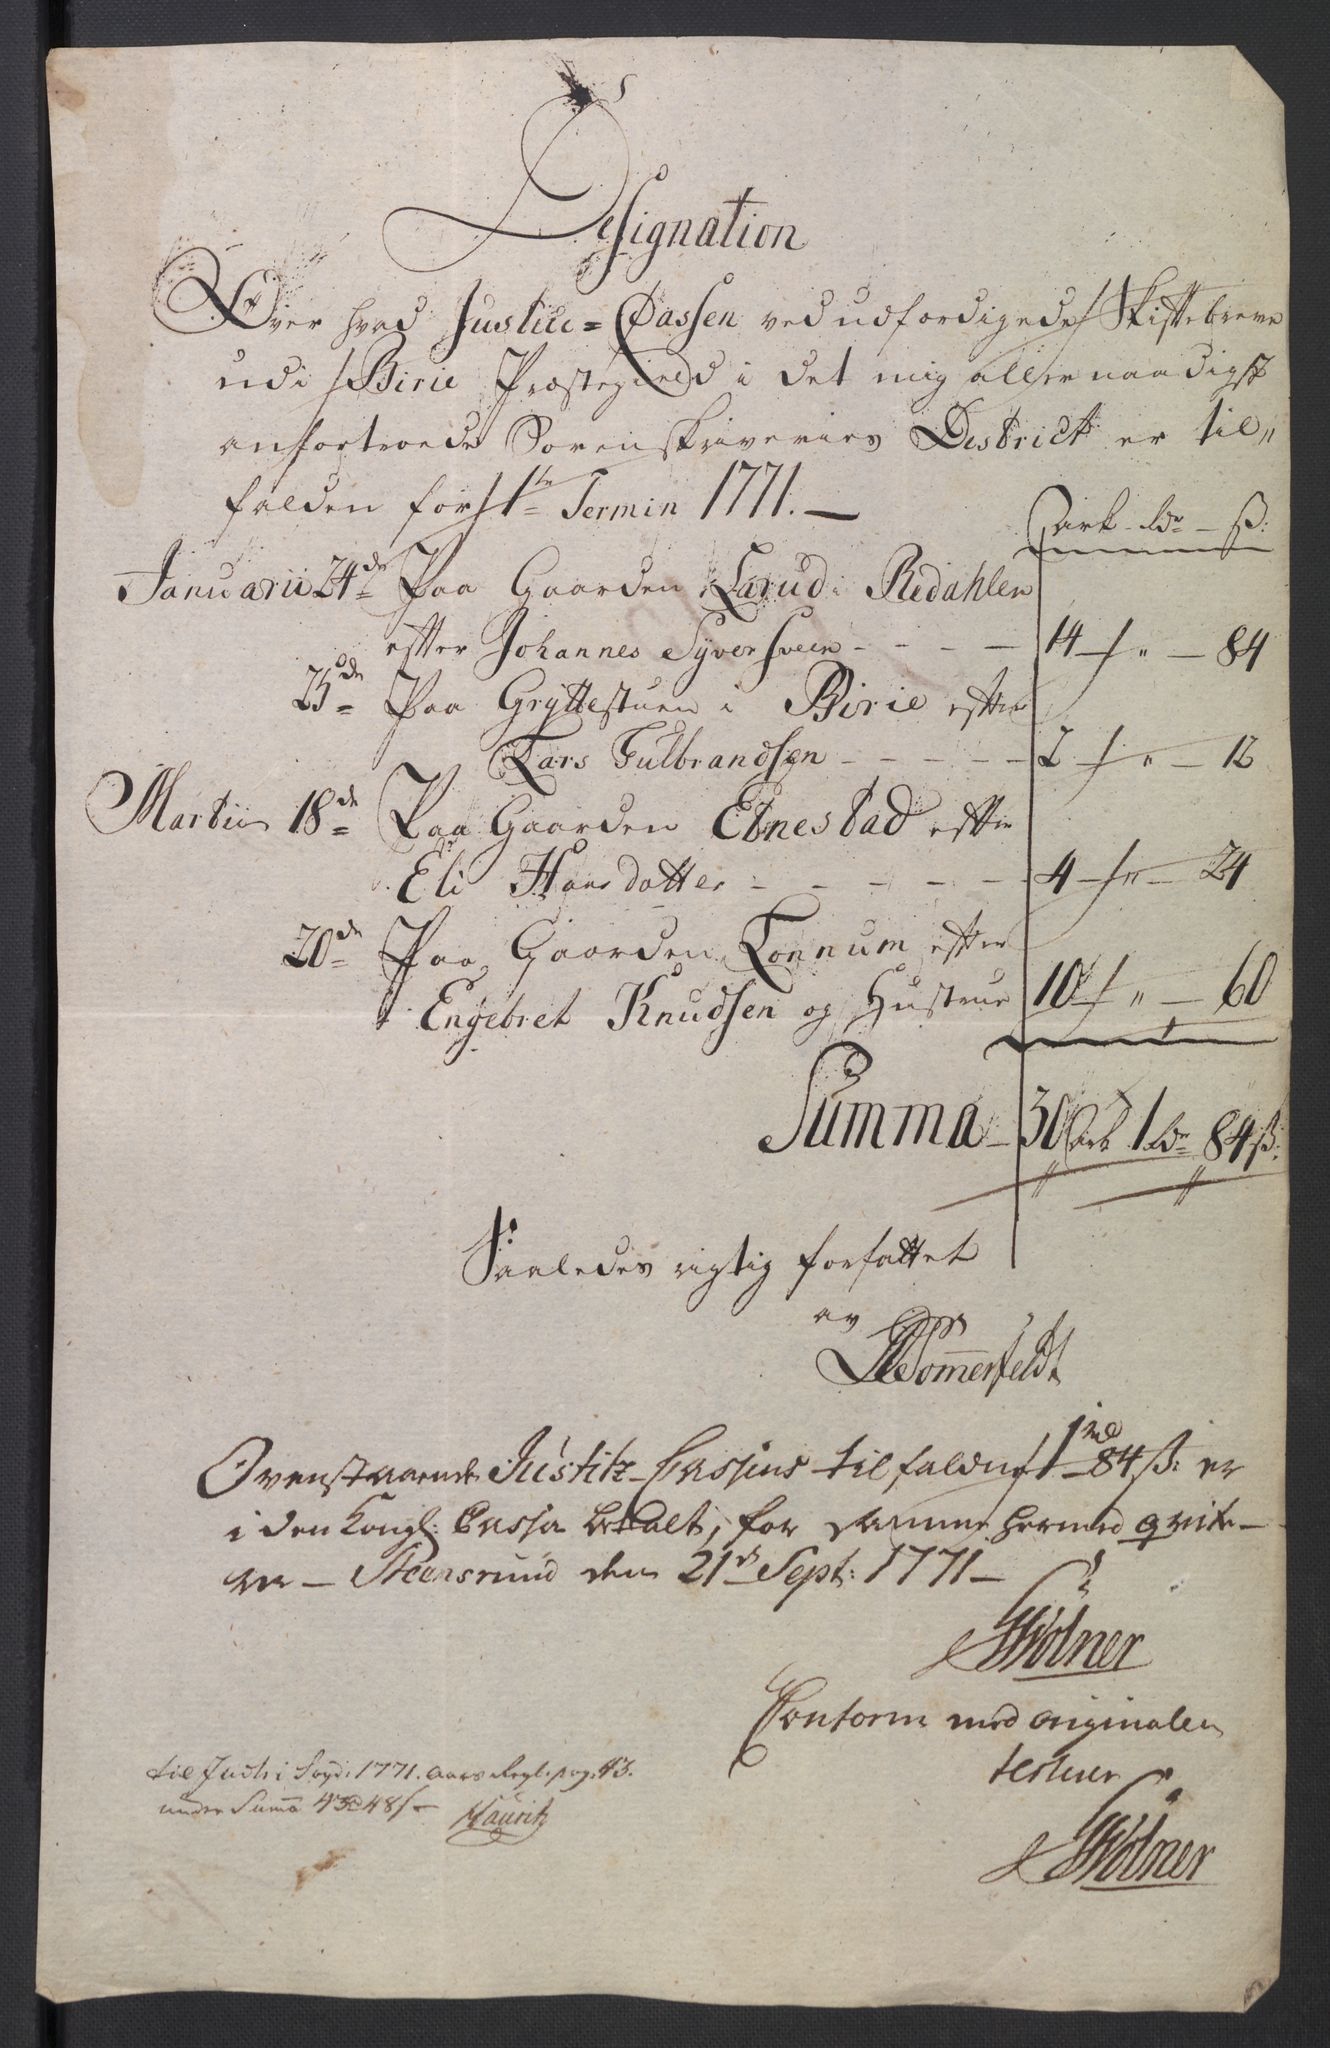 Designation
Over hvad Justice=Cassen ved udfærdigede Skiftebreve
udi Birie Præstegield i det mig allernaadigst
anfortroede Sorenskriveries District er til„
falden for 1te Termin 1771. —
ark — rdr — ß:
Januarii 24de Paa Gaarden Larud i Redahlen
efter Johannes Syversveen - - - - 14 — „ — 84
25de Paa Gryttestuen i Birie efter
Lars Gulbrandsen - - - - - 2 — „ — 12
Martii 18de Paa Gaarden Ebnestad efter
Eli Hansdatter - - - - - - 4 — „ — 24
20de Paa Gaarden Lonnum efter
Engebret Knudsen og Hustrue 10 — „ — 60
Summa — 30 Ark 1 rdr 84 ß:
Saaledes rigtig forfattet
av
Sommerfeldt
Ovenstaaende Justitz-Cassens tilfaldne 1 rd 84 ß: er
i den Kongl: Cassa betalt, for samme hermed qvite-
re — Steensrund den 21de Sept: 1771 —
Wölner
Conform med originalen
testerer
Wölner
til Justi: Sags: 1771. aars Regl: pag: 43.
under Summa 43 rd 48 ß —
Hauritz